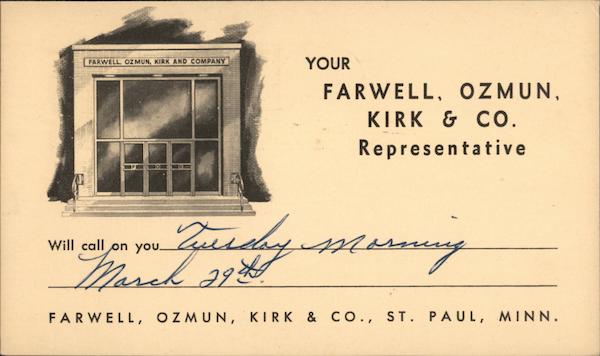 FARWELL, OZMUN, KIRK AND COMPANY
YOUR
FARWELL, OZMUN,
KIRK & CO.
Representative
Will call on you Tuesday Morning
March 29th.
FARWELL, OZMUN, KIRK & CO., ST. PAUL, MINN.